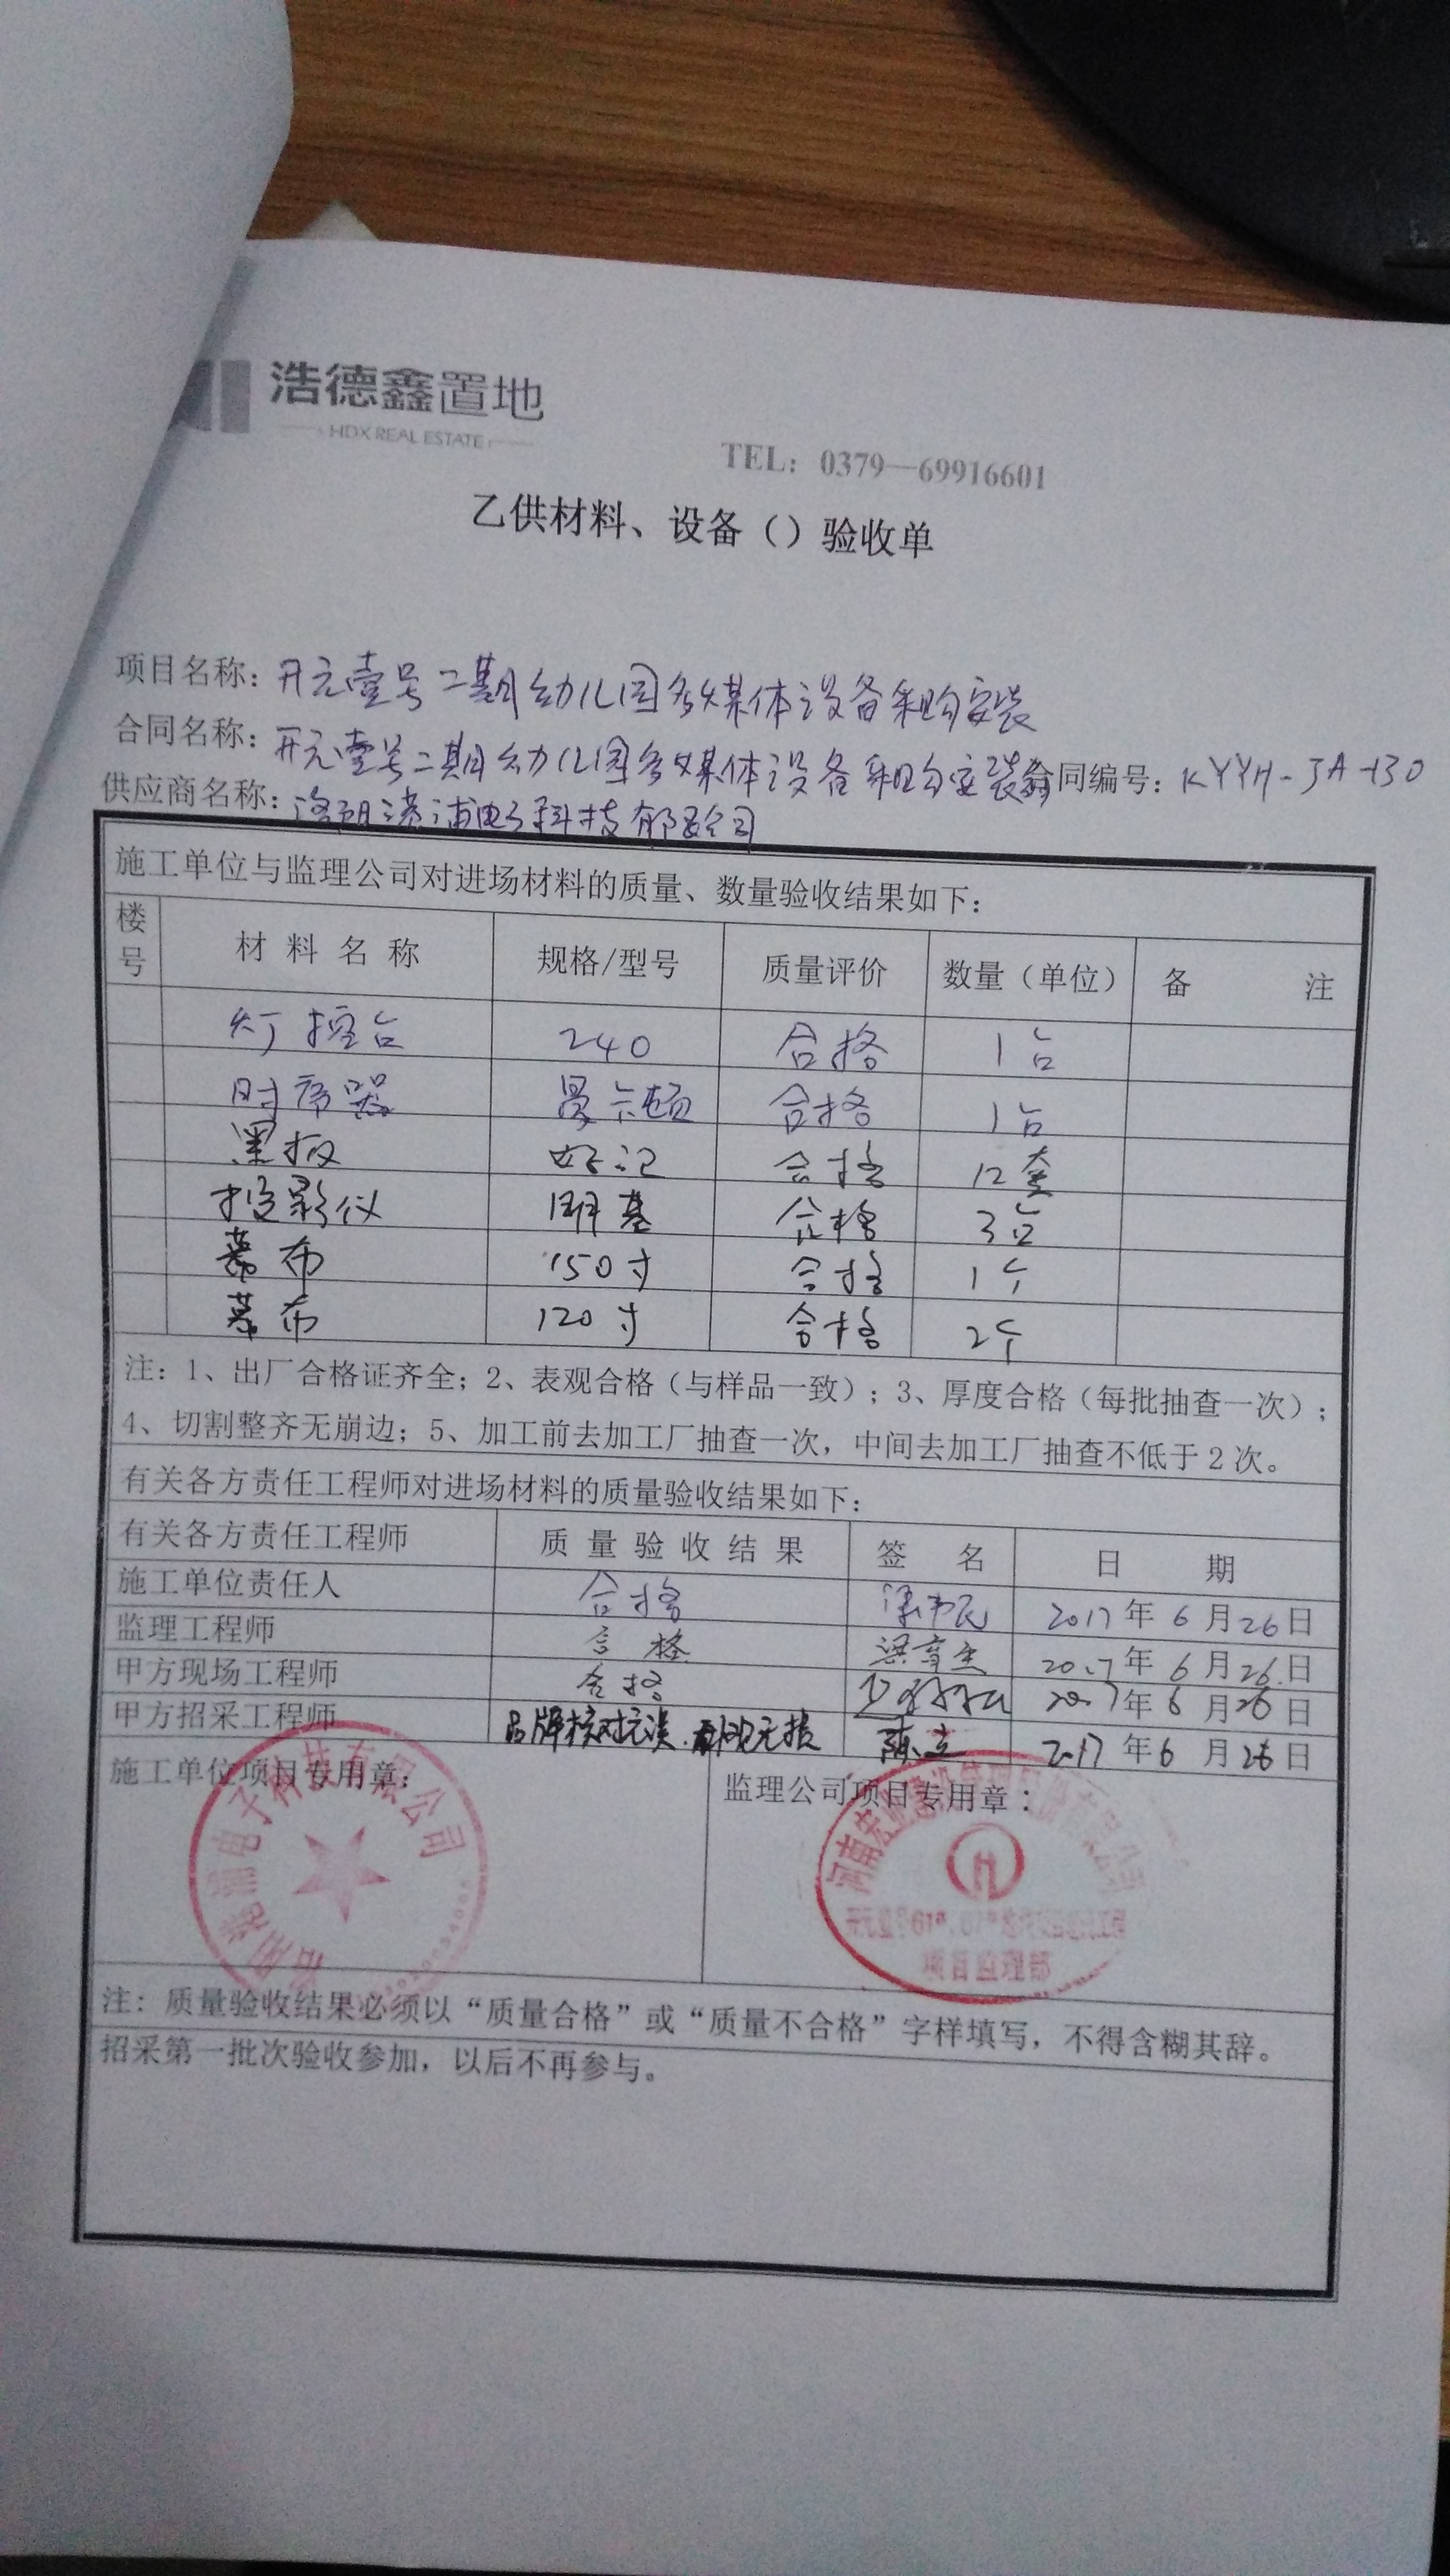 浩德鑫置地
HDX REAL ESTATE
TEL：0379—69916601
乙供材料、设备（）验收单
项目名称：开元壹号二期幼儿园多媒体设备采购安装
合同名称：开元壹号二期幼儿园多媒体设备采购安装 合同编号：KYYH-JA-130
供应商名称：洛阳 浦电子科技有限公司
施工单位与监理公司对进场材料的质量、数量验收结果如下：
楼号 材料名称 规格/型号 质量评价 数量（单位） 备注
灯控台 240 合格 1台
时序器 曼卡顿 合格 1台
黑板 好记 合格 12套
投影仪 明基 合格 3台
幕布 150寸 合格 1个
幕布 120寸 合格 2个
注：1、出厂合格证齐全；2、表观合格（与样品一致）；3、厚度合格（每批抽查一次）；
4、切割整齐无崩边；5、加工前去加工厂抽查一次，中间去加工厂抽查不低于2次。
有关各方责任工程师对进场材料的质量验收结果如下：
有关各方责任工程师 质量验收结果 签名 日期
施工单位责任人 合格 2017年6月26日
监理工程师 合格 2017年6月26日
甲方现场工程师 合格 2017年6月26日
甲方招采工程师 品牌核对无误 无损 陈立 2017年6月26日
施工单位项目专用章：
监理公司项目专用章：
电子科技有限公司
河南宏业建设
项目监理部
注：质量验收结果必须以“质量合格”或“质量不合格”字样填写，不得含糊其辞。
招采第一批次验收参加，以后不再参与。